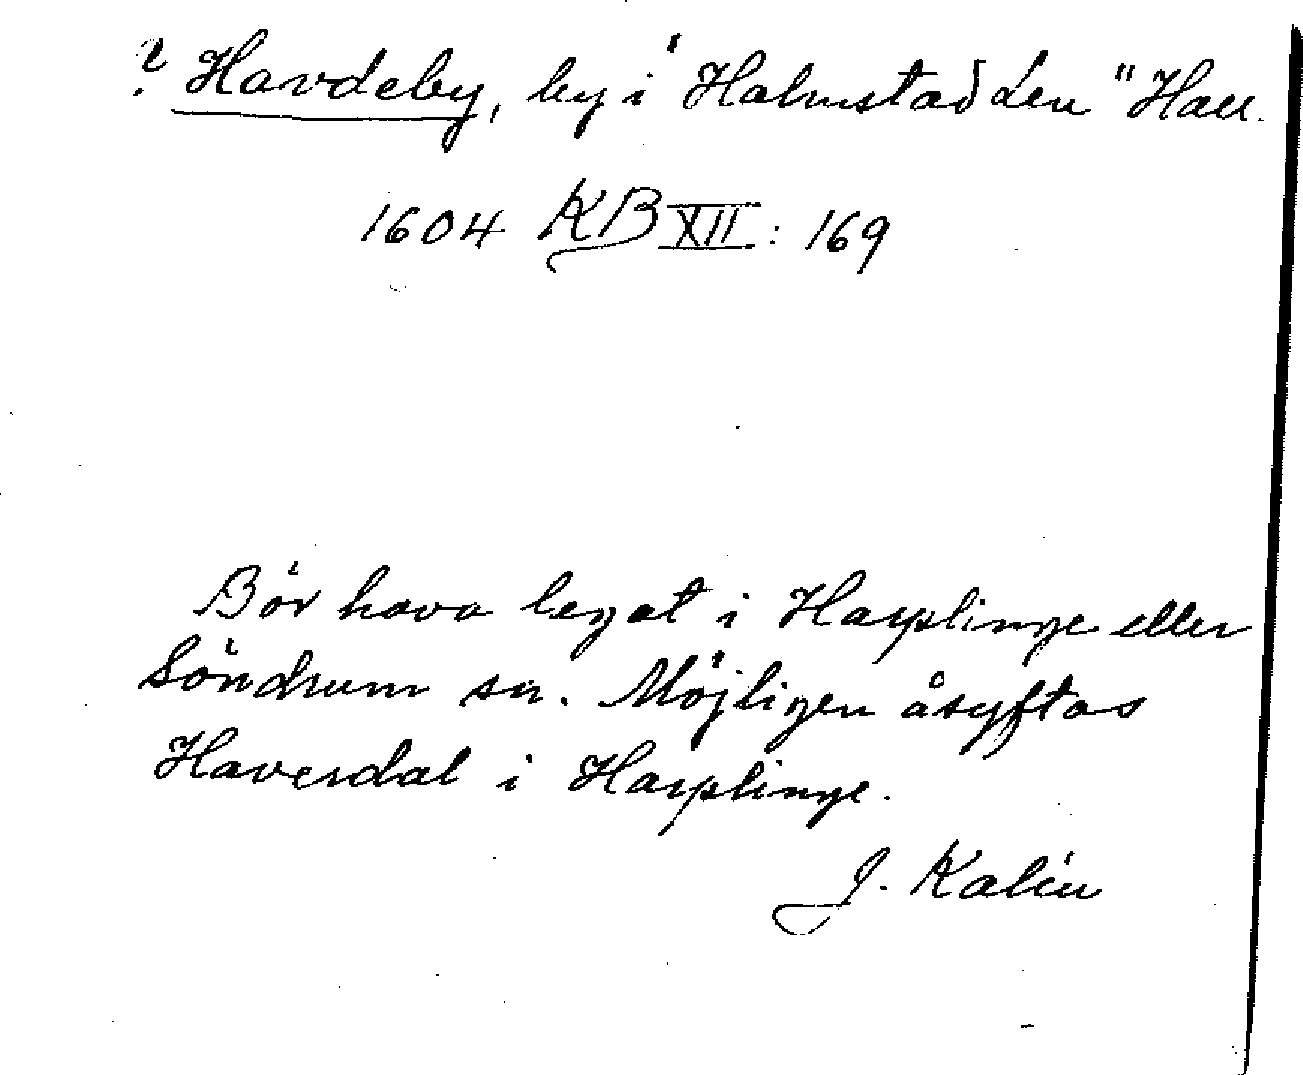 ? Havdeby, by i "Halmstad Len" Hall.
1604 KB XII: 169
Bör hava legat i Harplinge eller
Söndrum sn. Möjligen åsyftas
Haverdal i Harplinge.
J. Kalén